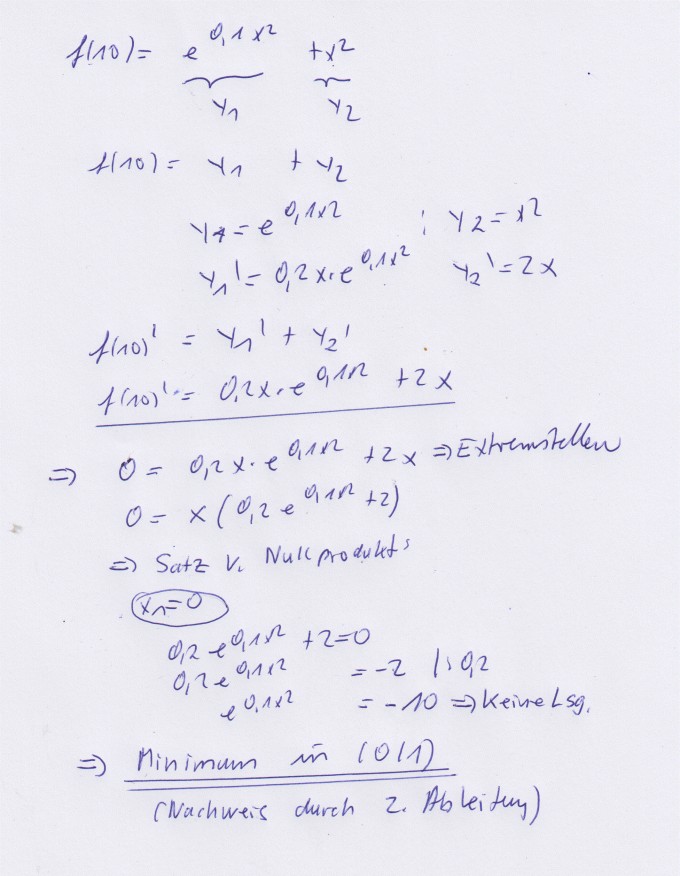 f(10) = e^0,1x² + x²
y1 y2
f(10) = y1 + y2
y1 = e^0,1x² ; y2 = x²
y1' = 0,2x · e^0,1x² y2' = 2x
f(10)' = y1' + y2'
f(10)' = 0,2x · e^0,1x² + 2x
=> 0 = 0,2x · e^0,1x² + 2x => Extremstellen
0 = x (0,2 e^0,1x² + 2)
=> Satz v. Nullprodukt
x1 = 0
0,2 e^0,1x² + 2 = 0
0,2 e^0,1x² = -2 |: 0,2
e^0,1x² = -10 => Keine Lsg.
=> Minimum in (0/1)
(Nachweis durch 2. Ableitung)